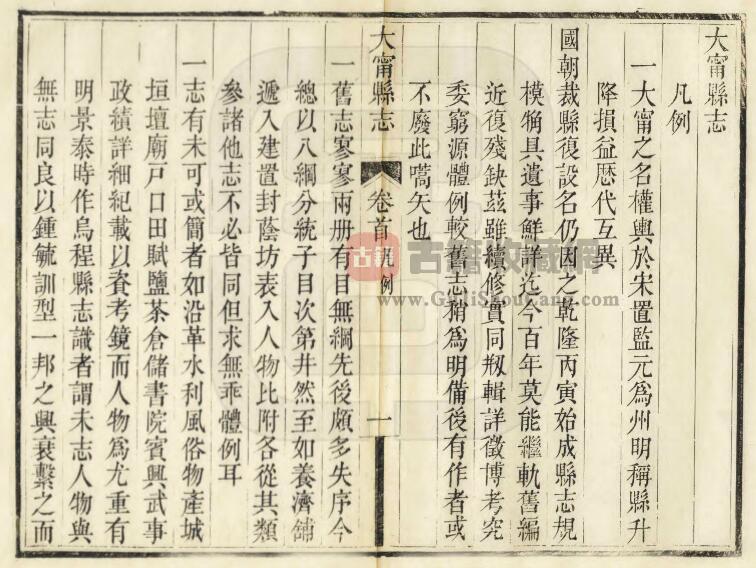 大甯縣志
凡例
一大甯之名權輿於宋置監元爲州明稱縣升
降損益歴代互異
國朝裁縣復設名仍因之乾隆丙寅始成縣志規
模觕具遺事鮮詳迄今百年莫能繼軌舊編
近復殘缺茲雖續修實同剏輯詳徵博考究
委窮源體例較舊志稍爲明備後有作者或
不廢此嚆矢也
大甯縣志
卷首 凡例
一
一舊志寥寥兩册有目無綱先後頗多失序今
總以八綱分統子目次第井然至如養濟舖
遞入建置封蔭坊表入人物比附各從其類
參諸他志不必皆同但求無乖體例耳
一志有未可或簡者如沿革水利風俗物產城
垣壇廟戸口田賦鹽茶倉儲書院賓興武事
政績詳細紀載以資考鏡而人物爲尤重有
明景泰時作烏程縣志識者謂未志人物與
無志同良以鍾毓訓型一邦之興衰繫之而
古籍 古籍收藏網
www.GujiShouCang.com